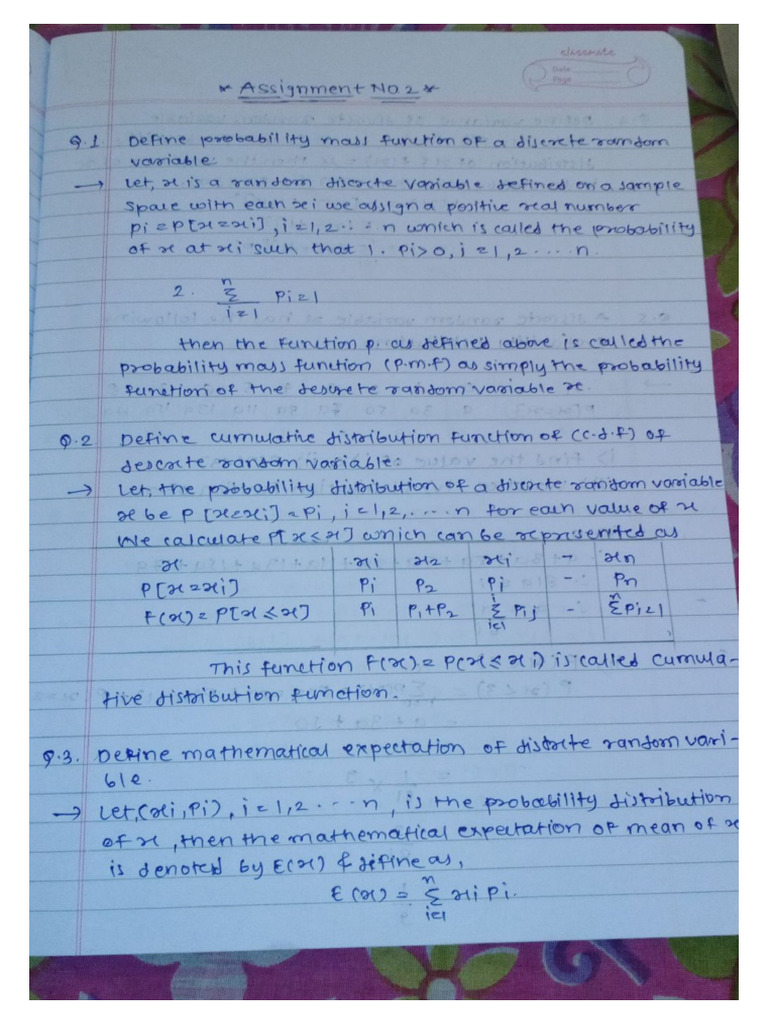 classmate
Date
Page
* Assignment No.2 *
Q.1 Define probability mass function of a discrete random
variable:
→ Let, x is a random discrete variable defined on a sample
space with each xi we assign a positive real number
pi = P[x = xi], i = 1, 2 . . . n which is called the probability
of x at xi such that 1. Pi > 0, i = 1, 2 . . . . n.
2. n Σ i=1 Pi = 1
then the function p. as defined above is called the
probability mass function (p.m.f) as simply the probability
function of the descrete random variable x.
Q.2 Define cumulative distribution function of (c.d.f) of
descrete random variable:
→ Let, the probability distribution of a discrete random variable
x be P [x = xi] = Pi, i = 1, 2, . . . . n for each value of x
We calculate P[x ≤ x] which can be represented as
x | xi | x2 | xi | - | xn
P[x = xi] | Pi | P2 | Pi | -. | Pn
F(x) = P[x ≤ x] | Pi | P1+P2 | i Σ i=1 Pij | -. | n Σ Pi = 1
This function F(x) = P(x ≤ xi) is called cumula-
tive distribution function.
Q.3. Define mathematical expectation of distrete random vari-
ble.
→ Let, (xi, Pi), i = 1, 2 . . . n, is the probability distribution
of x, then the mathematical expectation of mean of x
is denoted by E(x) & define as,
E(x) = n Σ i=1 xi Pi.